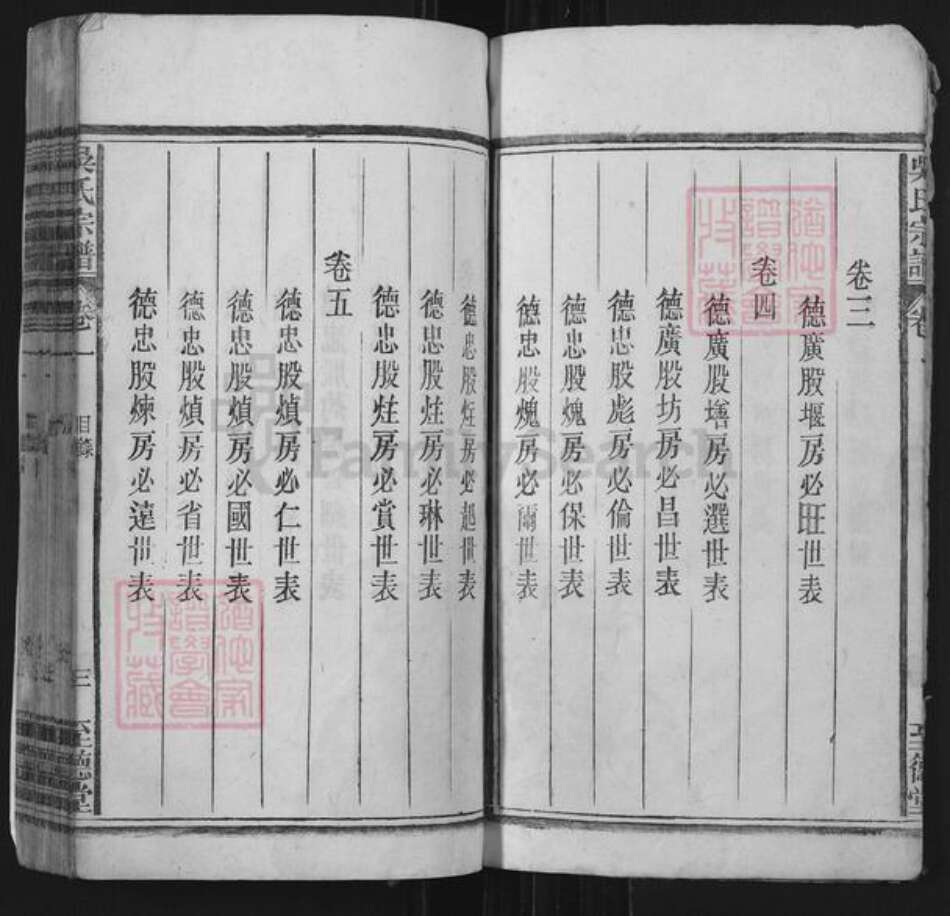 吳氏宗譜
卷一
至德堂
卷三
德廣股堰房必旺世表
卷四
德廣股墡房必選世表
德廣股坊房必昌世表
德忠股彪房必倫世表
德忠股燠房必保世表
德忠股燠房必爾世表
德忠股炷房必趙世表
德忠股炷房必琳世表
德忠股炷房必賞世表
卷五
德忠股熕房必仁世表
德忠股熕房必國世表
德忠股熕房必省世表
德忠股煉房必遠世表
吳氏宗譜
卷一
目錄
三
至德堂
FamilySearch